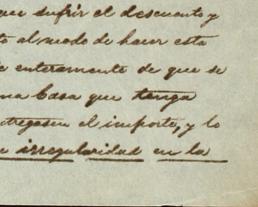 que sufrir el descuento y
to al modo de hacer esta
enteramente de que se
una Casa que tenga
tregasen el importe, y lo
irregularidad en la